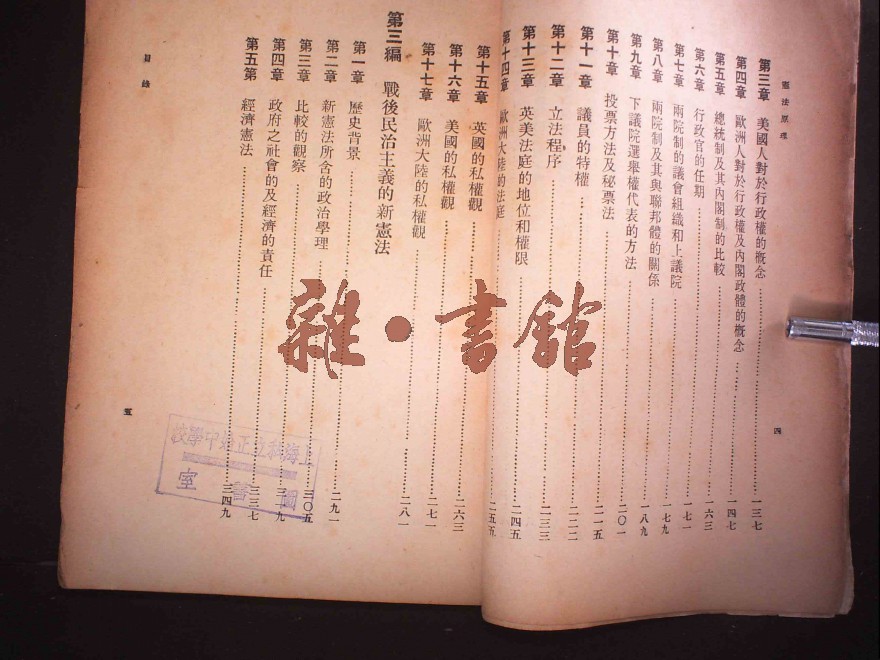 憲法原理
第三章 美國人對於行政權的概念……一三七
第四章 歐洲人對於行政權及內閣政體的概念……一四七
第五章 總統制及其內閣制的比較……一六三
第六章 行政官的任期……一七一
第七章 兩院制的議會組織和上議院……一七九
第八章 兩院制及其與聯邦體的關係……一八九
第九章 下議院選舉權代表的方法……二〇一
第十章 投票方法及秘票法……二一五
第十一章 議員的特權……二二二
第十二章 立法程序……二三三
第十三章 英美法庭的地位和權限……二四五
第十四章 歐洲大陸的法庭……二五五
四
第十五章 英國的私權觀……二六三
第十六章 美國的私權觀……二七一
第十七章 歐洲大陸的私權觀……二八一
第三編 戰後民治主義的新憲法
第一章 歷史背景……二九一
第二章 新憲法所含的政治學理……三〇五
第三章 比較的觀察……三一九
第四章 政府之社會的及經濟的責任……三三七
第五第 經濟憲法……三四九
目錄
五
雜·書館
上海私立正始中學校
圖書室